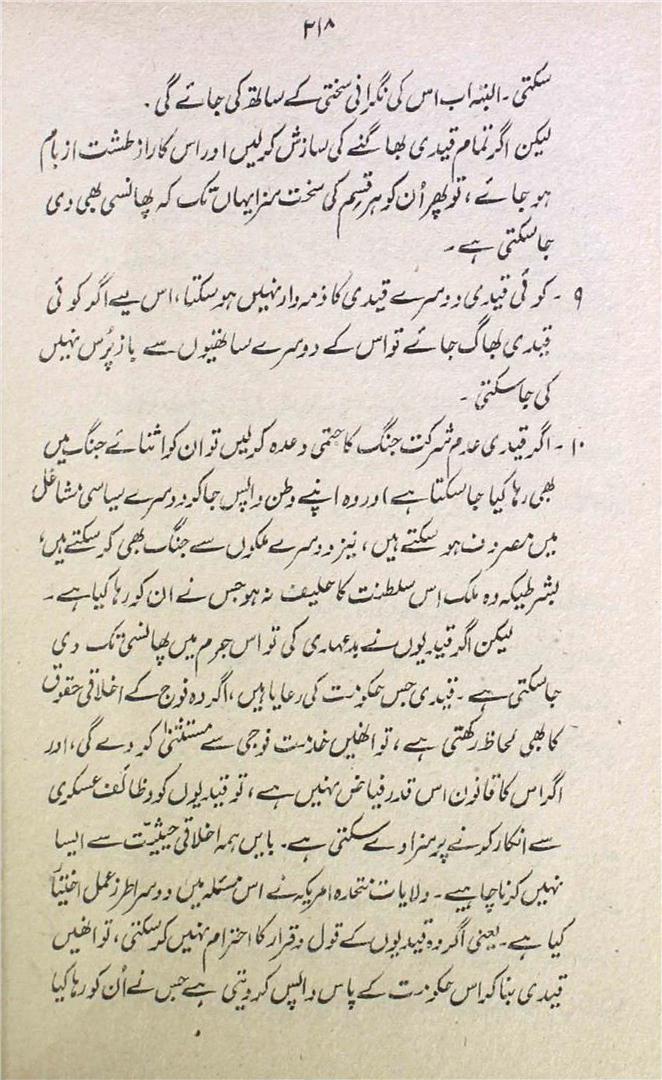 ۳۱۸
سکتی ۔ البتہ اب اس کی نگرانی سختی کے ساتھ کی جائے گی ۔
لیکن اگر تمام قیدی بھاگنے کی سازش کرلیں اور اس کا راز طشت از بام
ہو جائے ، تو پھر اُن کو ہر قسم کی سخت سزا یہاں تک کہ پھانسی بھی دی
جاسکتی ہے ۔
۹ ۔ کوئی قیدی دوسرے قیدی کا ذمہ دار نہیں ہوسکتا ، اس لیے اگر کوئی
قیدی بھاگ جائے تو اس کے دوسرے ساتھیوں سے باز پُرس نہیں
کی جاسکتی ۔
۱۰ ۔ اگر قیدی عدم شرکت جنگ کا حتمی وعدہ کرلیں تو ان کو اثنائے جنگ میں
بھی رہا کیا جاسکتا ہے اور وہ اپنے وطن واپس جاکر دوسرے سیاسی مشاغل
میں مصروف ہو سکتے ہیں ، نیز دوسرے ملکوں سے جنگ بھی کرسکتے ہیں ،
بشرطیکہ وہ ملک اس سلطنت کا حلیف نہ ہو جس نے ان کو رہا کیا ہے ۔
لیکن اگر قیدیوں نے بدعہدی کی تو اس جرم میں پھانسی تک دی
جاسکتی ہے ۔ قیدی جس حکومت کی رعایا ہیں ، اگر وہ فوج کے اخلاقی حقوق
کا بھی لحاظ رکھتی ہے ، تو انھیں خدمت فوجی سے مستثنیٰ کردے گی ، اور
اگر اس کا قانون اس قدر فیاض نہیں ہے ، تو قیدیوں کو وظائف عسکری
سے انکار کرنے پر سزا دے سکتی ہے ۔ بایں ہمہ اخلاقی حیثیت سے ایسا
نہیں کرنا چاہیے ۔ ولایات متحدہ امریکہ نے اس مسئلہ میں دوسرا طرز عمل اختیار
کیا ہے ۔ یعنی اگر وہ قیدیوں کے قول و قرار کا احترام نہیں کرسکتی ، تو انھیں
قیدی بنا کر اس حکومت کے پاس واپس کردیتی ہے جس نے اُن کو رہا کیا